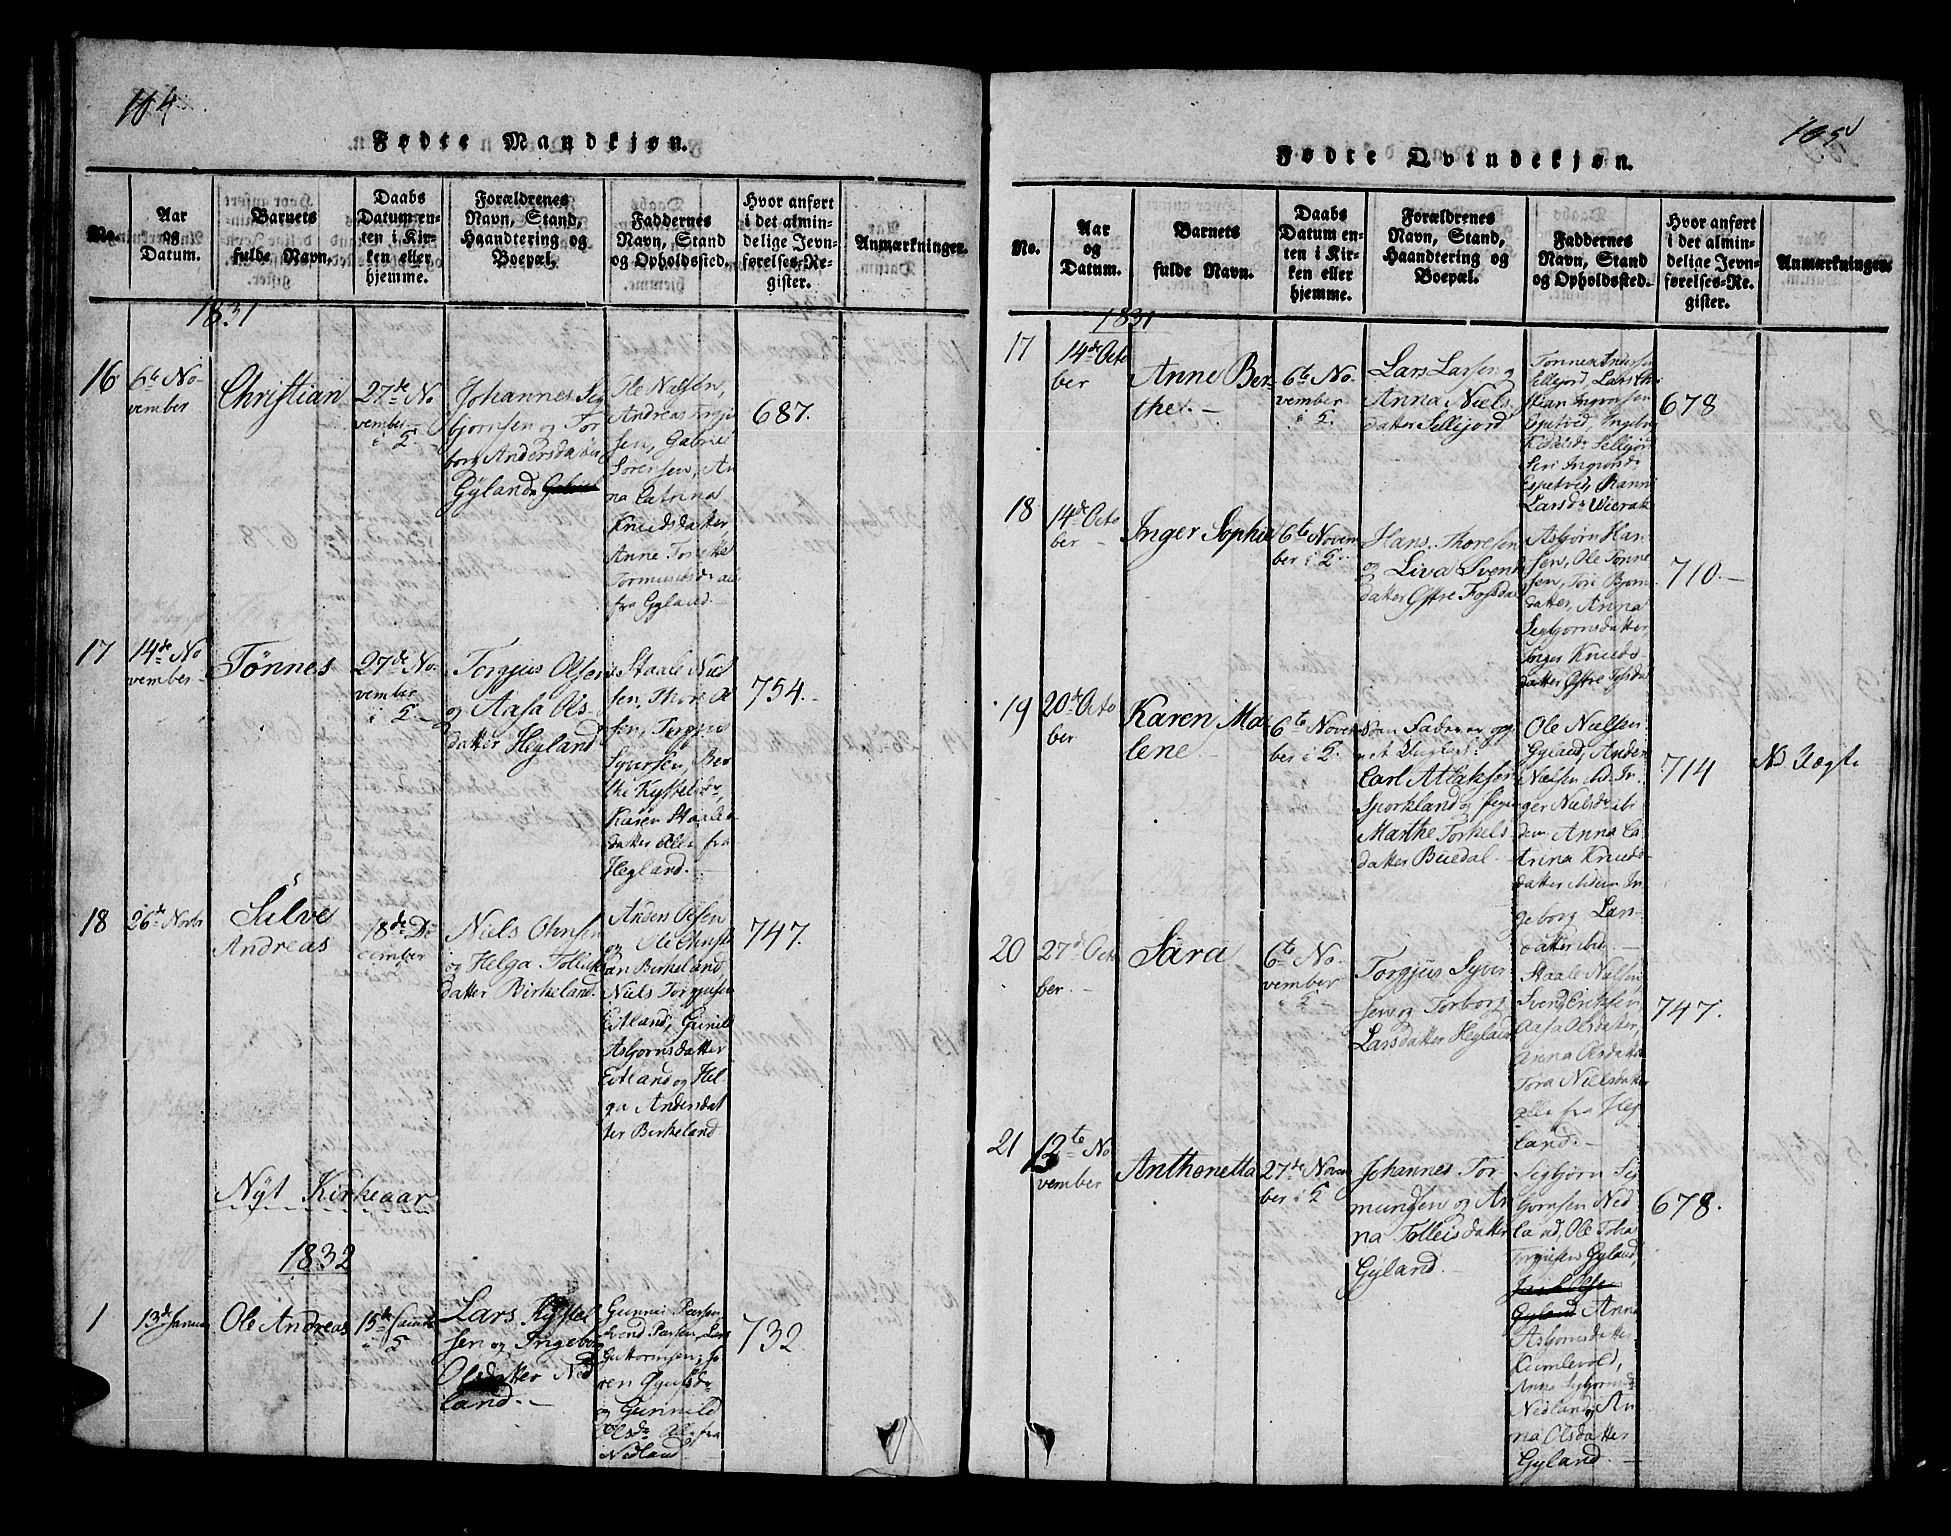 104
Fødte Mandkjøn.
No.
Aar
og
Datum.
Barnets
fulde Navn.
Daabs
Datum en-
ten i Kir-
ken eller
hjemme.
Forældrenes
Navn, Stand,
Haandtering og
Boepæl.
Faddernes
Navn, Stand
og Opholdssted.
Hvor anført
i det almin-
delige Jevn-
førelses-Re-
gister.
Anmærkninger.
1831
16
6te No-
vember
Christian
27de No
vember
i K
Johannes Sig
bjørnsen og Tor
borg Andersdatter
Gyland
Ole Nielsen,
Andreas Torju
sen, Gabriel
Sørensen, An
na Catrina
Knudsdatter
Anne Tonette
Tormundsdr alle
fra Gyland.
687.
17
14de No
vember
Tönnes
27de No-
vember
i K
Torgjus Olsen
og Aasa Ols-
datter Hegland
Staale Niel
sen, Thore Ol
sen, Torgjus
Syversen, Ber
the Kystelsdr,
Karen Staales
datter alle fra
Hegland.
754.
18
26de Novbr
Sülve
Andreas
18de De
cember
Niels Ohnsen
og Helga Tollisk
datter Birkeland.
Anders Olsen
og Ole Christi
an Birkeland,
Niels Torgjusen
Eitland, Gunild
Asbjornsdatter
Eitland og Hel
ga Andersdat
ter Birkeland
747.
Nÿt Kirkeaar
1832
1
13de Januar
Ole Andreas
15de
i K
Lars Kystel
sen og Ingeborg
Olsdatter Ned
land.
Gunnar Pedersen,
Svend Pedersen, Lars
Guttormsen,
og Gunnild
Olsdr alle fra
Nedland
732
105
Fødte Qvindekjøn.
No.
Aar
og
Datum.
Barnets
fulde Navn.
Daabs
Datum en-
ten i Kir-
ken eller
hjemme.
Forældrenes
Navn, Stand,
Haandtering og
Boepæl.
Faddernes
Navn, Stand
og Opholdssted.
Hvor anført
i det almin-
delige Jevn-
førelses-Re-
gister.
Anmærkninger.
1831
17
14de Octo
ber
Anne Ber-
the.
6te No-
vember
i K
Lars Larsen og
Anna Niels
datter Sellejord
Tønnes Andersen
Sellejord, Lars Chri
stian Ingvorsen
Espetved, Ingebor
Sellejord
Seri Ingvorsdr
Espetved,
Larsdr
678
18
14de Octo
ber
Inger Sophie
6te Novem
ber i K
Hans Thoresen
og Liva Svends
datter Østre Fossdal
Asbjørn Han
sen, Ole Tønne
sen, Tori Bjørns
datter, Anna
Segbjornsdatter,
Inger Knuds
datter Østre Fossdal
710.
19
20de Octo
ber
Karen Ma
lene
6te Novem
ber i K
Carl Atlaksen
Sporkland og Pige
Marthe Torkels
datter Buedal.
Ole Nielsen
Gyland, Anders
Nielsen ibid, In
ger Nielsdr ibi
dem Anna Ca
trina Knuds-
datter ibidem In
geborg Lars-
datter ibid
714
NB Uægte
20
27de Octo
ber.
Sara
6te No-
vember
i K
Torgjus Syver
sen og Torborg
Larsdatter Hegland
Staale Nielsen,
Svend Eriksen,
Aasa Olsdatter,
Anna Olsdatter
Tora Nielsdatter
alle fra Heg
land.
747.
21
12te No
vember
Anthonetta
27de Novem
ber i K
Johannes Tor
mundsen og An
na Tolleisdatter
Gyland.
Segbjørn Seg
bjørnsen Ned
land, Ole Tobias
Torgiussen Gyland,
Gyland Anna
Asbjornsdatter
Kumlevold,
Anna Segbjornsdr
Nedland og An
na Olsdatter
Gyland.
678.